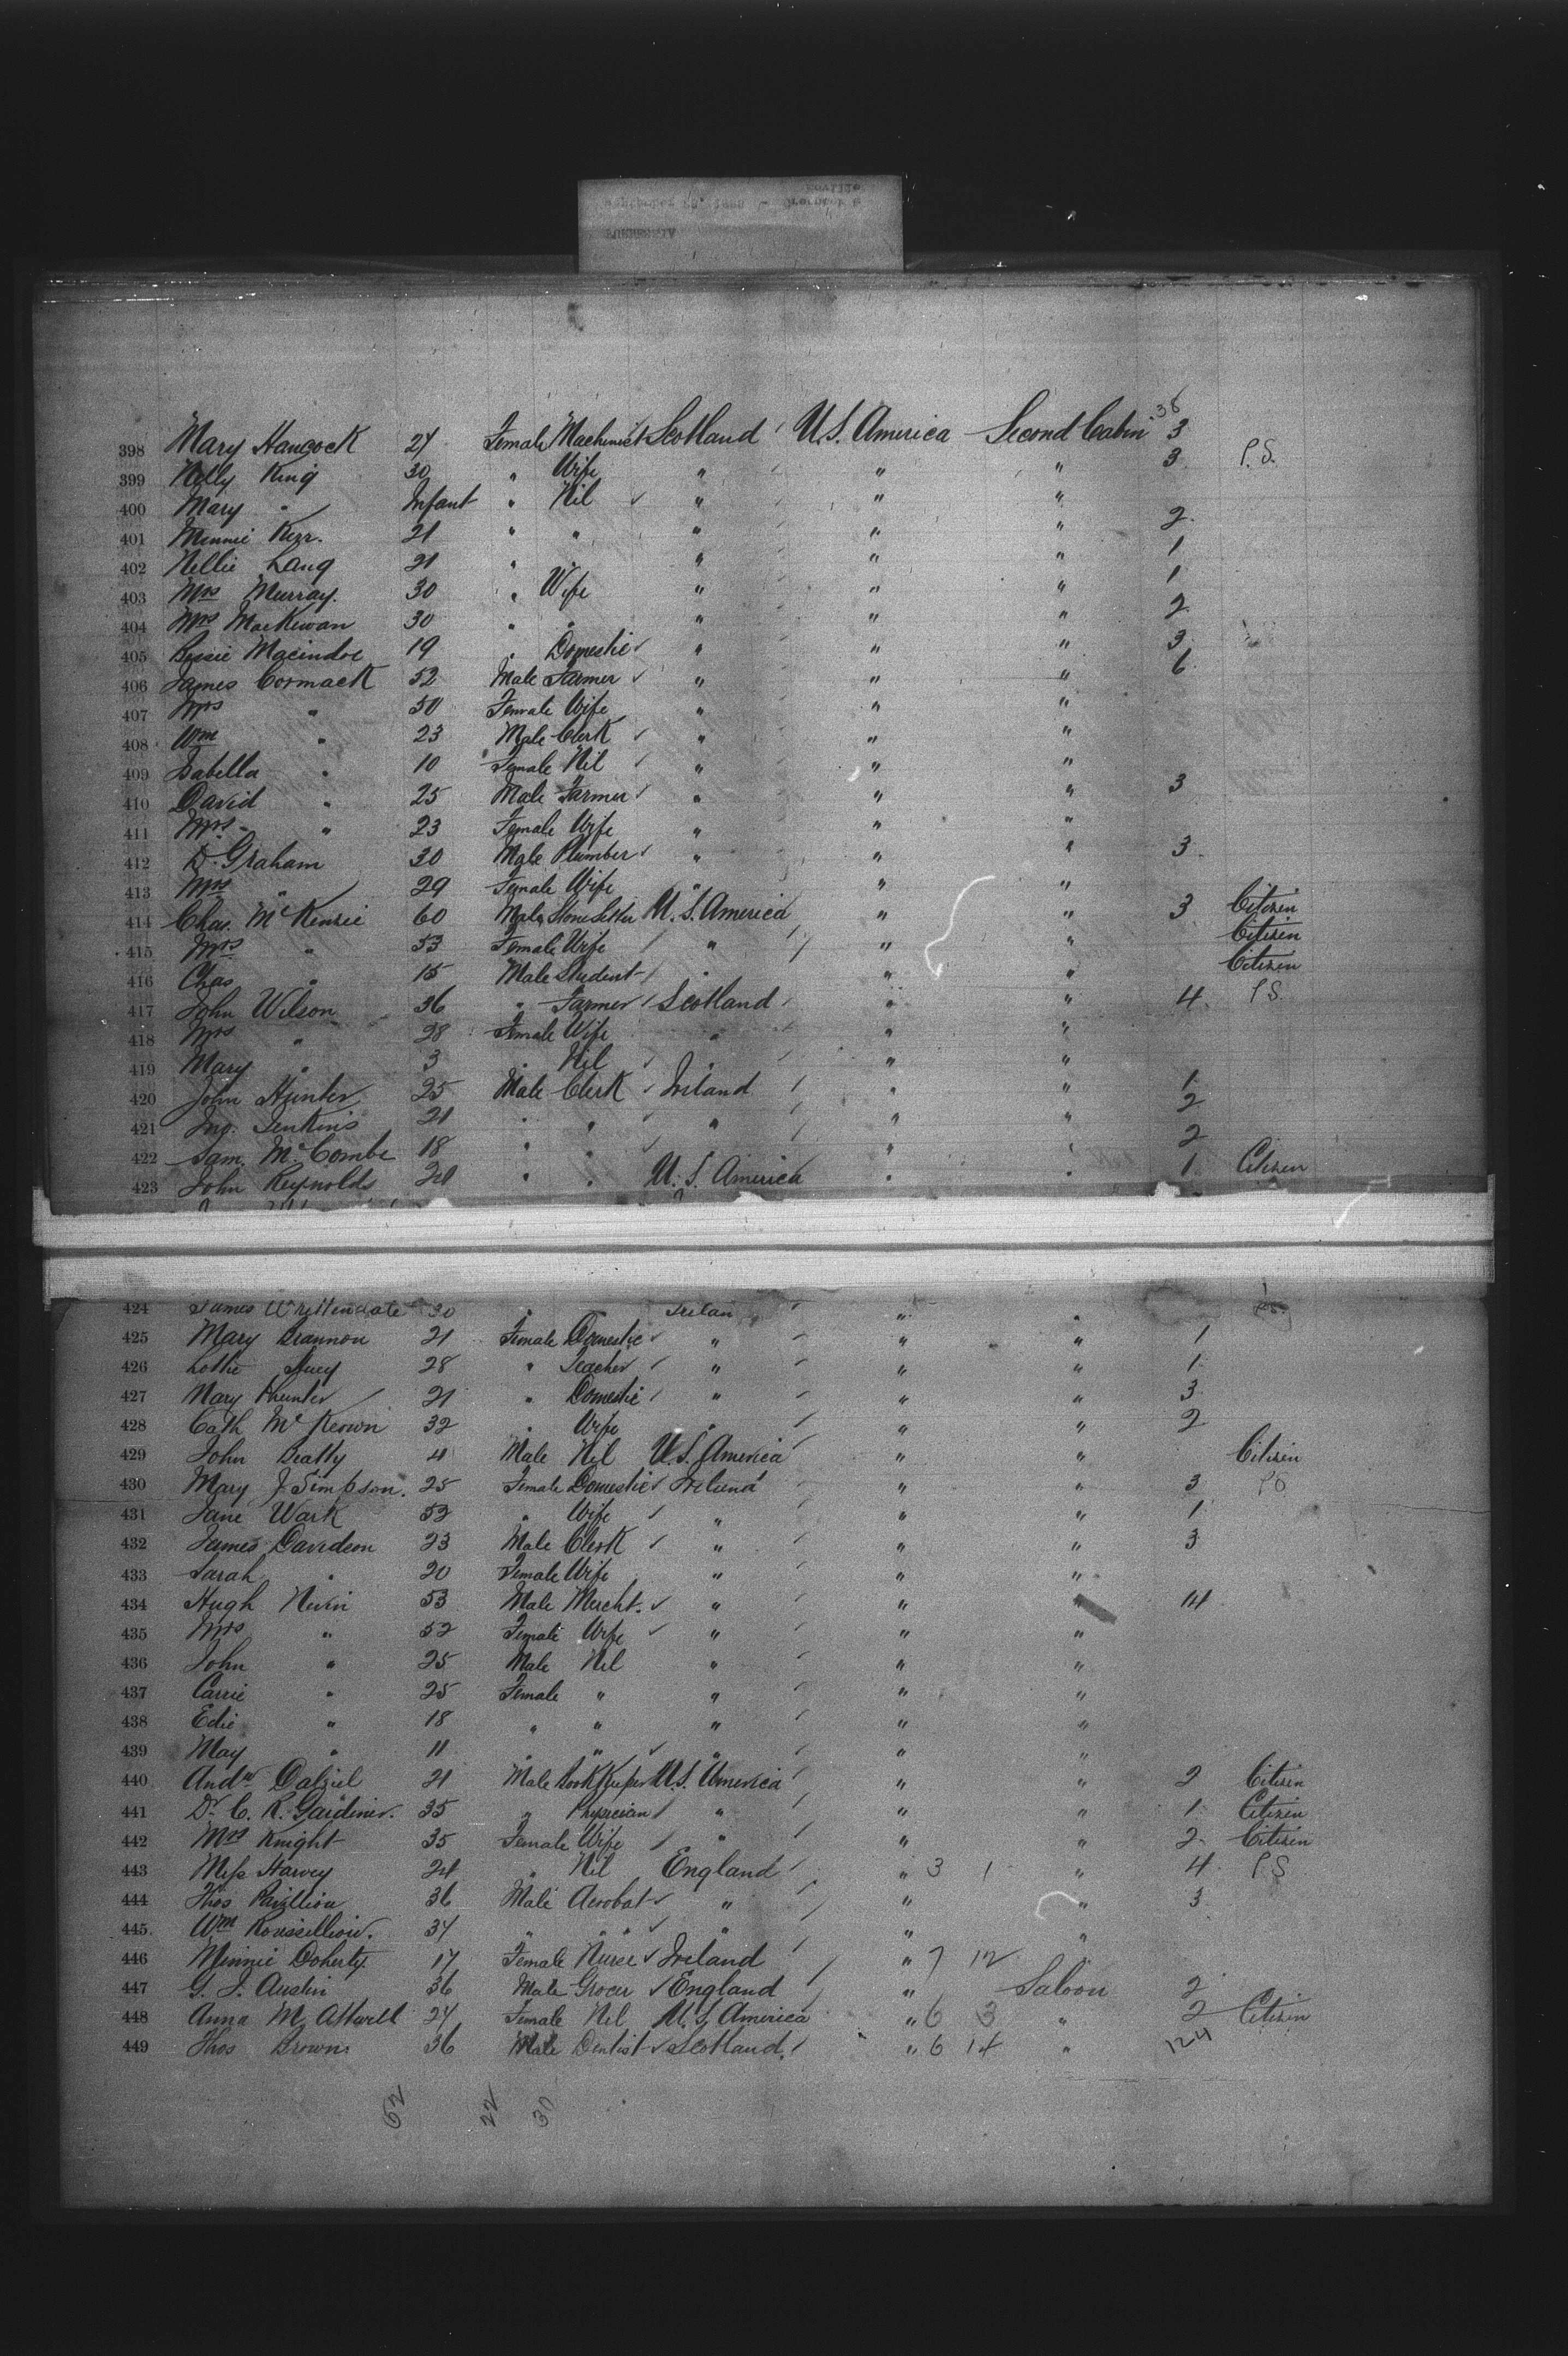 398 Mary Hancock 24 Female Machinist Scotland U.S. America Second Cabin 3
399 Nelly King 30 " Wife " " " 3 P.S.
400 Mary " Infant " Nil " " "
401 Minnie Kerr. 21 " " " " " 2
402 Nellie Lang 21 " " " " " 1
403 Mrs Murray. 30 " Wife " " " 1
404 Mrs MacKewan 30 " " " " " 2
405 Bessie Macindoe 19 " Domestic " " " 3
406 James Cormack 52 Male Farmer " " " 6
407 Mrs " 50 Female Wife " " "
408 Wm " 23 Male Clerk " " "
409 Isabella " 10 Female Nil " " "
410 David " 25 Male Farmer " " " 3
411 Mrs " 23 Female Wife " " "
412 D. Graham 30 Male Plumber " " " 3
413 Mrs " 29 Female Wife " " "
414 Chas. McKenzie 60 Male Stone Setter U.S. America " " 3 Citizen
415 Mrs " 53 Female Wife " " " Citizen
416 Chas " 15 Male Student " " " Citizen
417 John Wilson 36 " Farmer Scotland " " 4 P.S.
418 Mrs " 28 Female Wife " " "
419 Mary " 3 " Nil " " "
420 John Hunter 25 Male Clerk Ireland " " 1
421 Jno. Jenkins 21 " " " " " 2
422 Sam. McCombe 18 " " " " 2
423 John Reynolds 20 " " U.S. America " " 1 Citizen
424 James 30 " " "
425 Mary Brannon 21 Female Domestic " " " 1
426 Lottie 28 " Teacher " " " 1
427 Mary Hunter 21 " Domestic " " " 3
428 Cath McKeown 32 " Wife " " " 2
429 John Beatty 4 Male Nil U.S. America " " Citizen
430 Mary J Simpson. 25 Female Domestic Ireland " " 3 PS
431 Jane Wark 52 " Wife " " " 1
432 James Davidson 23 Male Clerk " " " 3
433 Sarah " 20 Female Wife " " "
434 Hugh Nevin 53 Male Mercht. " " " 14
435 Mrs " 52 Female Wife " " "
436 John " 25 Male Nil " " "
437 Carrie " 25 Female " " " "
438 Edie " 18 " " " " "
439 May " 11 " " " " "
440 Andw Dalziel 21 Male Book Keeper U.S. America " " 2 Citizen
441 Dr. C. R. Gardiner. 35 " Physician " " " 1 Citizen
442 Mrs Knight 35 Female Wife " " " 2 Citizen
443 Miss Harvey 24 " Nil England " 3 1 " 4 P.S
444 Thos 36 Male Acrobat " " " 3
445 Wm 34 " " " " "
446 Minnie Doherty 17 Female Nurse Ireland " 7 12
447 G. J. Austin 36 Male Grocer England " Saloon 2
448 Anna M. Attwell 24 Female Nil U.S. America " 6 3 " 2 Citizen
449 Thos Brown 36 Male Dentist Scotland. " 6 14 " 124
52 22 30